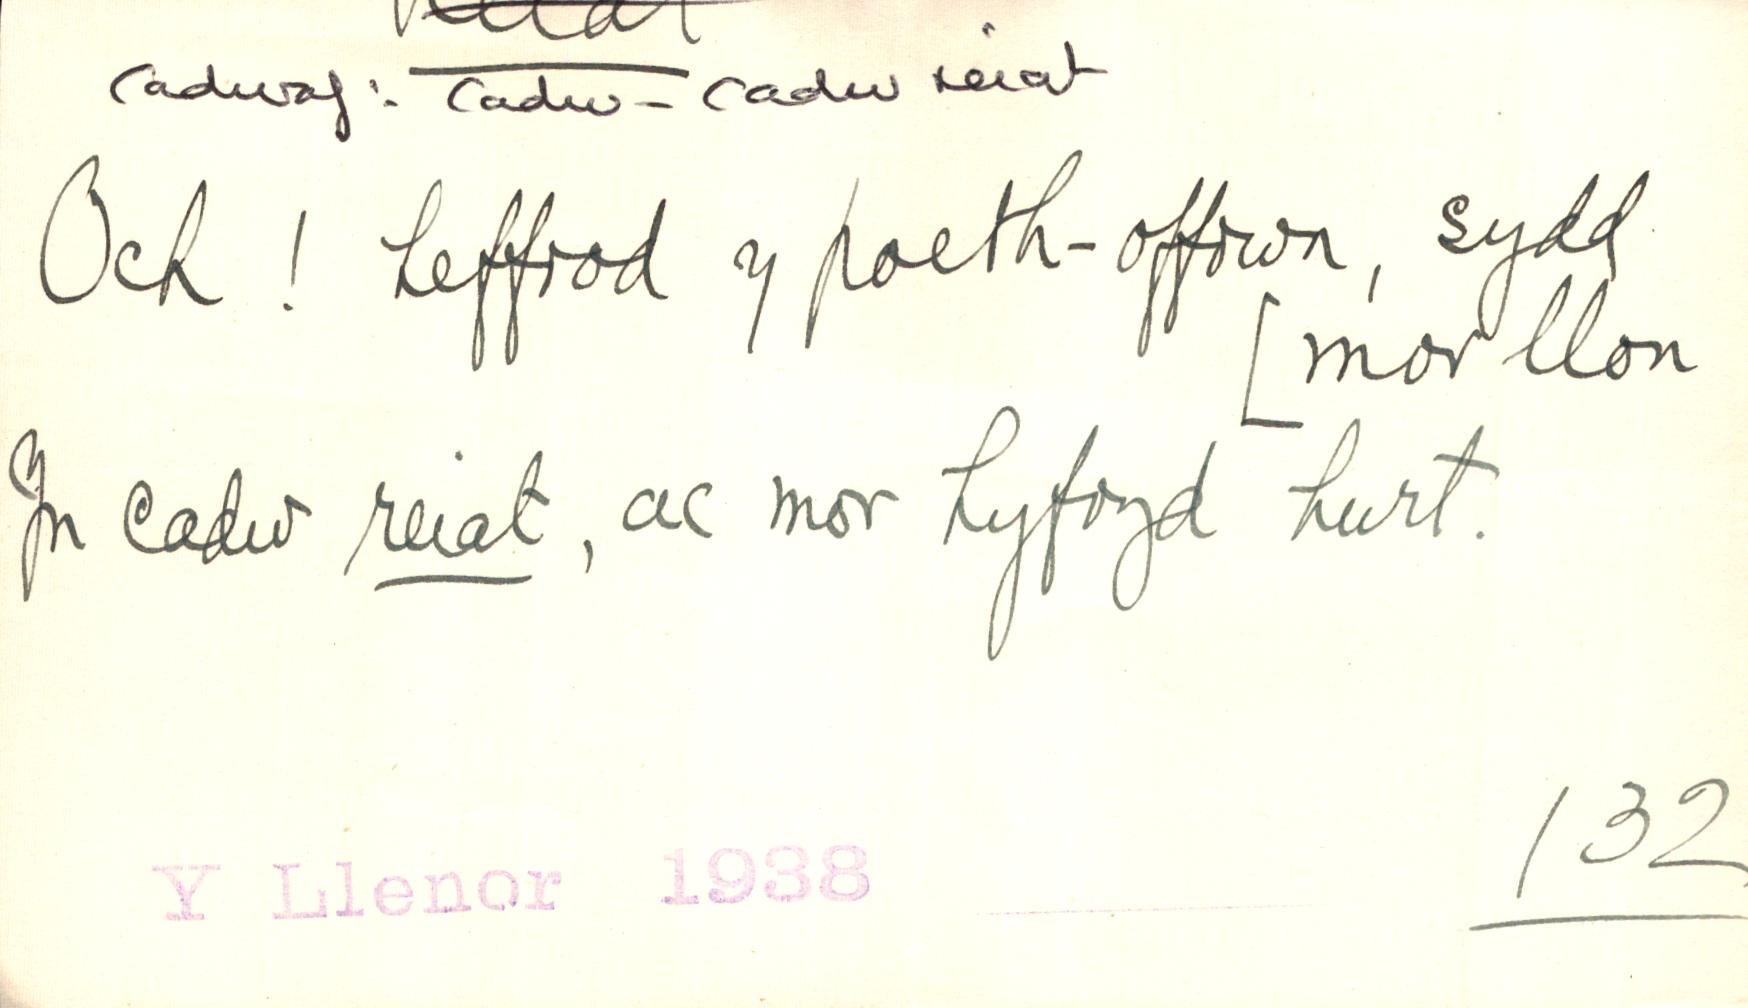 reiat
cadwaf: cadw - cadw reiat
Och! heffrod y poeth-offrwm, sydd
[mor llon
Yn cadw reiat, ac mor hyfryd hurt.
132
Y Llenor 1938